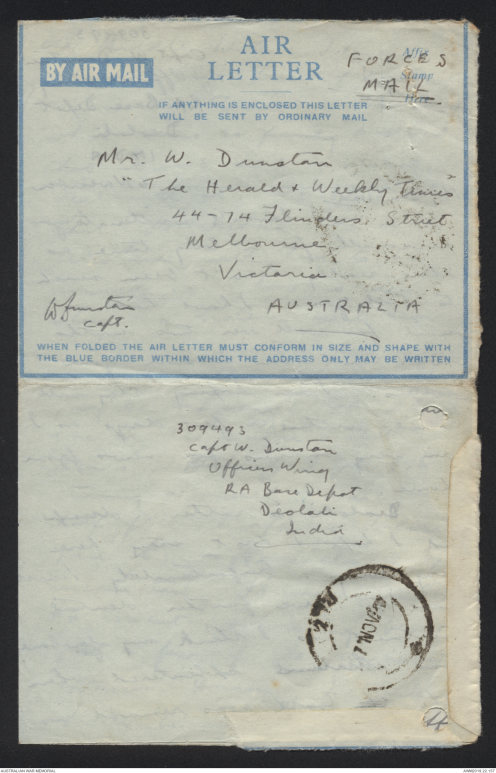 AIR
LETTER
BY AIR MAIL
Affix
Stamp
Here
FORCES
MAIL
IF ANYTHING IS ENCLOSED THIS LETTER
WILL BE SENT BY ORDINARY MAIL
Mr. W. Dunstan
"The Herald & Weekly Times"
44-74 Flinders Street
Melbourne
Victoria
AUSTRALIA
W Dunstan
Capt.
WHEN FOLDED THE AIR LETTER MUST CONFORM IN SIZE AND SHAPE WITH
THE BLUE BORDER WITHIN WHICH THE ADDRESS ONLY MAY BE WRITTEN
309493
Capt W. Dunstan
Officers Wing
RA Base Depot
Deolali
India
7 NOV
4
AUSTRALIAN WAR MEMORIAL